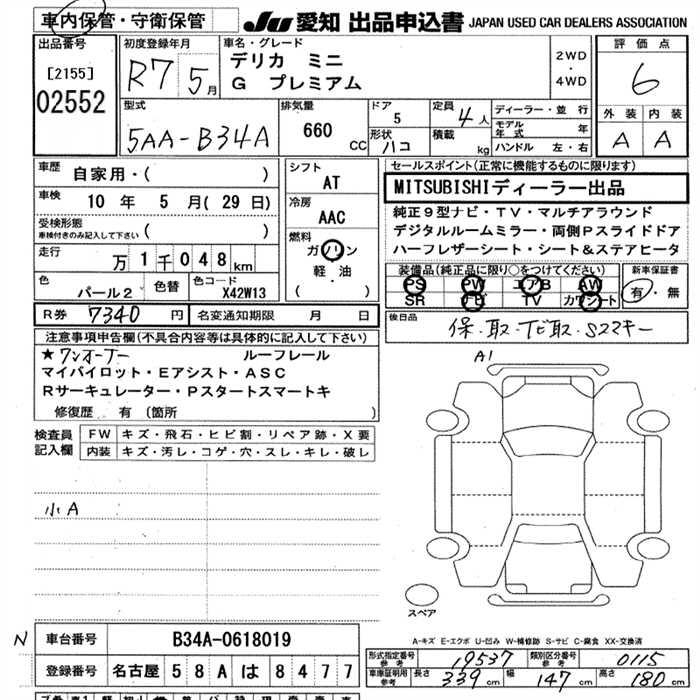 車内保管・守衛保管
JU 愛知 出品申込書 JAPAN USED CAR DEALERS ASSOCIATION
出品番号
[2155]
02552
初度登録年月
R7 5月
車名・グレード
デリカ ミニ
G プレミアム
2WD
・
4WD
評価点
6
外装 内装
A A
型式
5AA-B34A
排気量
660 CC
ドア
5
形状
ハコ
定員
4人
積載
kg
ディーラー・並行
モデル年式 年
ハンドル 左・右
車歴
自家用・( )
車検
10 年 5 月( 29 日)
受検形態
車検付きのみ記入して下さい ( )
走行
万 1千 0 4 8 km
色
パール2
色替
色コード
X42W13
シフト
AT
冷房
AAC
燃料
ガソリン
軽・油
( )
R券 7340 円
名変通知期限 月 日
セールスポイント(正常に機能するものに限ります)
MITSUBISHIディーラー出品
純正9型ナビ・TV・マルチアラウンド
デジタルルームミラー・両側Pスライドドア
ハーフレザーシート・シート&ステアヒータ
装備品(純正品に限り○をつけてください)
PS PW エアB AW
SR ナビ TV カワシート
新車保証書
有・無
後日品
保・取・ナビ取・Sスマキー
注意事項申告欄(不具合内容等は具体的に記入して下さい)
★ワンオーナー ルーフレール
マイパイロット・Eアシスト・ASC
Rサーキュレーター・Pスタートスマートキ
修復歴 有 (箇所 )
検査員記入欄
FW キズ・飛石・ヒビ割・リペア跡・X要
内装 キズ・汚レ・コゲ・穴・スレ・キレ・破レ
小A
A1
スペア
A-キズ E-エクボ U-凹み W-補修跡 S-サビ C-腐食 XX-交換済
N
車台番号 B34A-0618019
登録番号 名古屋 5 8 A は 8 4 7 7
形式指定番号 参考 19537
類別区分番号 参考 0115
車庫証明用 参考 長さ 339 cm 幅 147 cm 高さ 180 cm